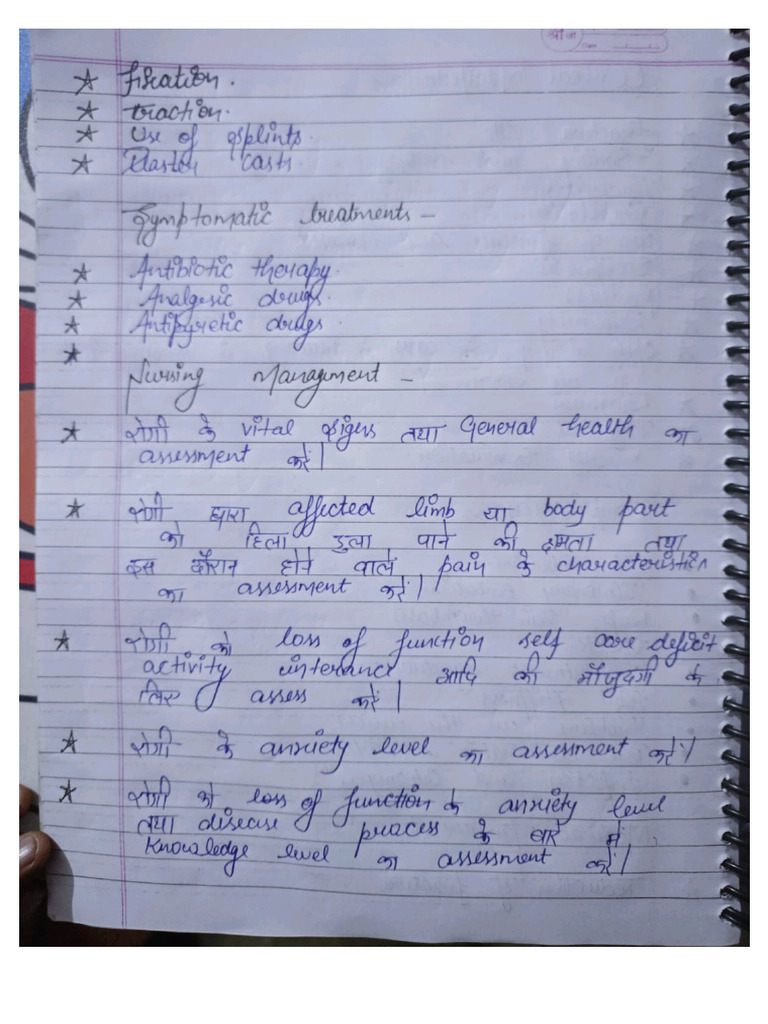 श्री जी
Date
★ Fixation.
★ traction.
★ Use of splints.
★ Plaster casts.
Symptomatic treatments –
★ Antibiotic therapy.
★ Analgesic drugs.
★ Antipyretic drugs.
★
Nursing Management –
★ रोगी के vital signs तथा General health का
assessment करें।
★ रोगी द्वारा affected limb या body part
को हिला डुला पाने की क्षमता तथा
इस दौरान होने वाले pain के characteristics
का assessment करें।
★ रोगी को loss of function self care deficit
activity interance आदि की मौजुदगी के
लिए assess करें।
★ रोगी के anxiety level का assessment करें।
★ रोगी को loss of function के anxiety level
तथा disease process के बारे में
knowledge level का assessment करें।